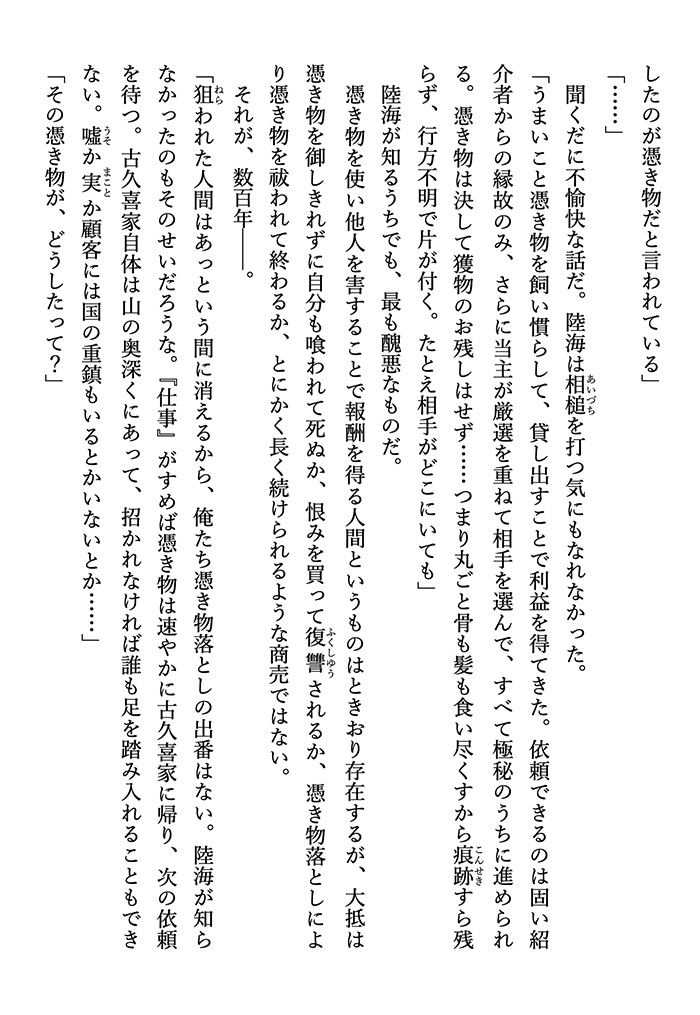 したのが憑き物だと言われている」
「……」
　聞くだに不愉快な話だ。陸海は相槌を打つ気にもなれなかった。
「うまいこと憑き物を飼い慣らして、貸し出すことで利益を得てきた。依頼できるのは固い紹
介者からの縁故のみ、さらに当主が厳選を重ねて相手を選んで、すべて極秘のうちに進められ
る。憑き物は決して獲物のお残しはせず……つまり丸ごと骨も髪も食い尽くすから痕跡すら残
らず、行方不明で片が付く。たとえ相手がどこにいても」
　陸海が知るうちでも、最も醜悪なものだ。
　憑き物を使い他人を害することで報酬を得る人間というものはときおり存在するが、大抵は
憑き物を御しきれずに自分も喰われて死ぬか、恨みを買って復讐されるか、憑き物落としによ
り憑き物を祓われて終わるか、とにかく長く続けられるような商売ではない。
　それが、数百年――。
「狙われた人間はあっという間に消えるから、俺たち憑き物落としの出番はない。陸海が知ら
なかったのもそのせいだろうな。『仕事』がすめば憑き物は速やかに古久喜家に帰り、次の依頼
を待つ。古久喜家自体は山の奥深くにあって、招かれなければ誰も足を踏み入れることもでき
ない。嘘か実か顧客には国の重鎮もいるとかいないとか……」
「その憑き物が、どうしたって？」